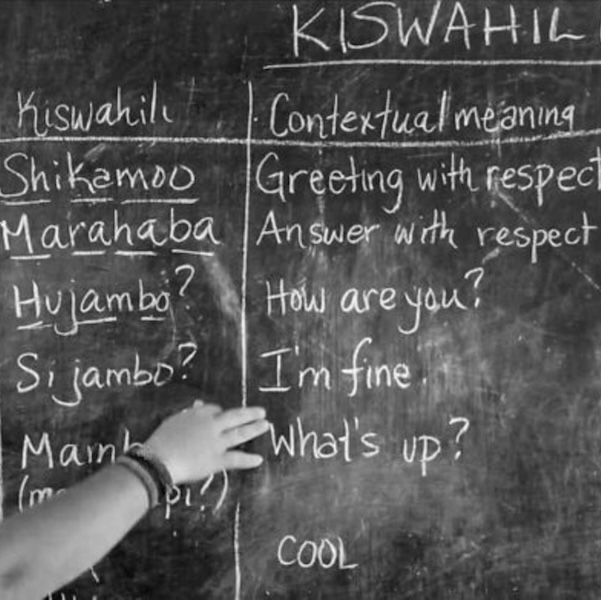 KISWAHILI
Kiswahili Contextual meaning
Shikamoo Greeting with respect
Marahaba Answer with respect
Hujambo? How are you?
Sijambo? I'm fine.
What's up?
COOL